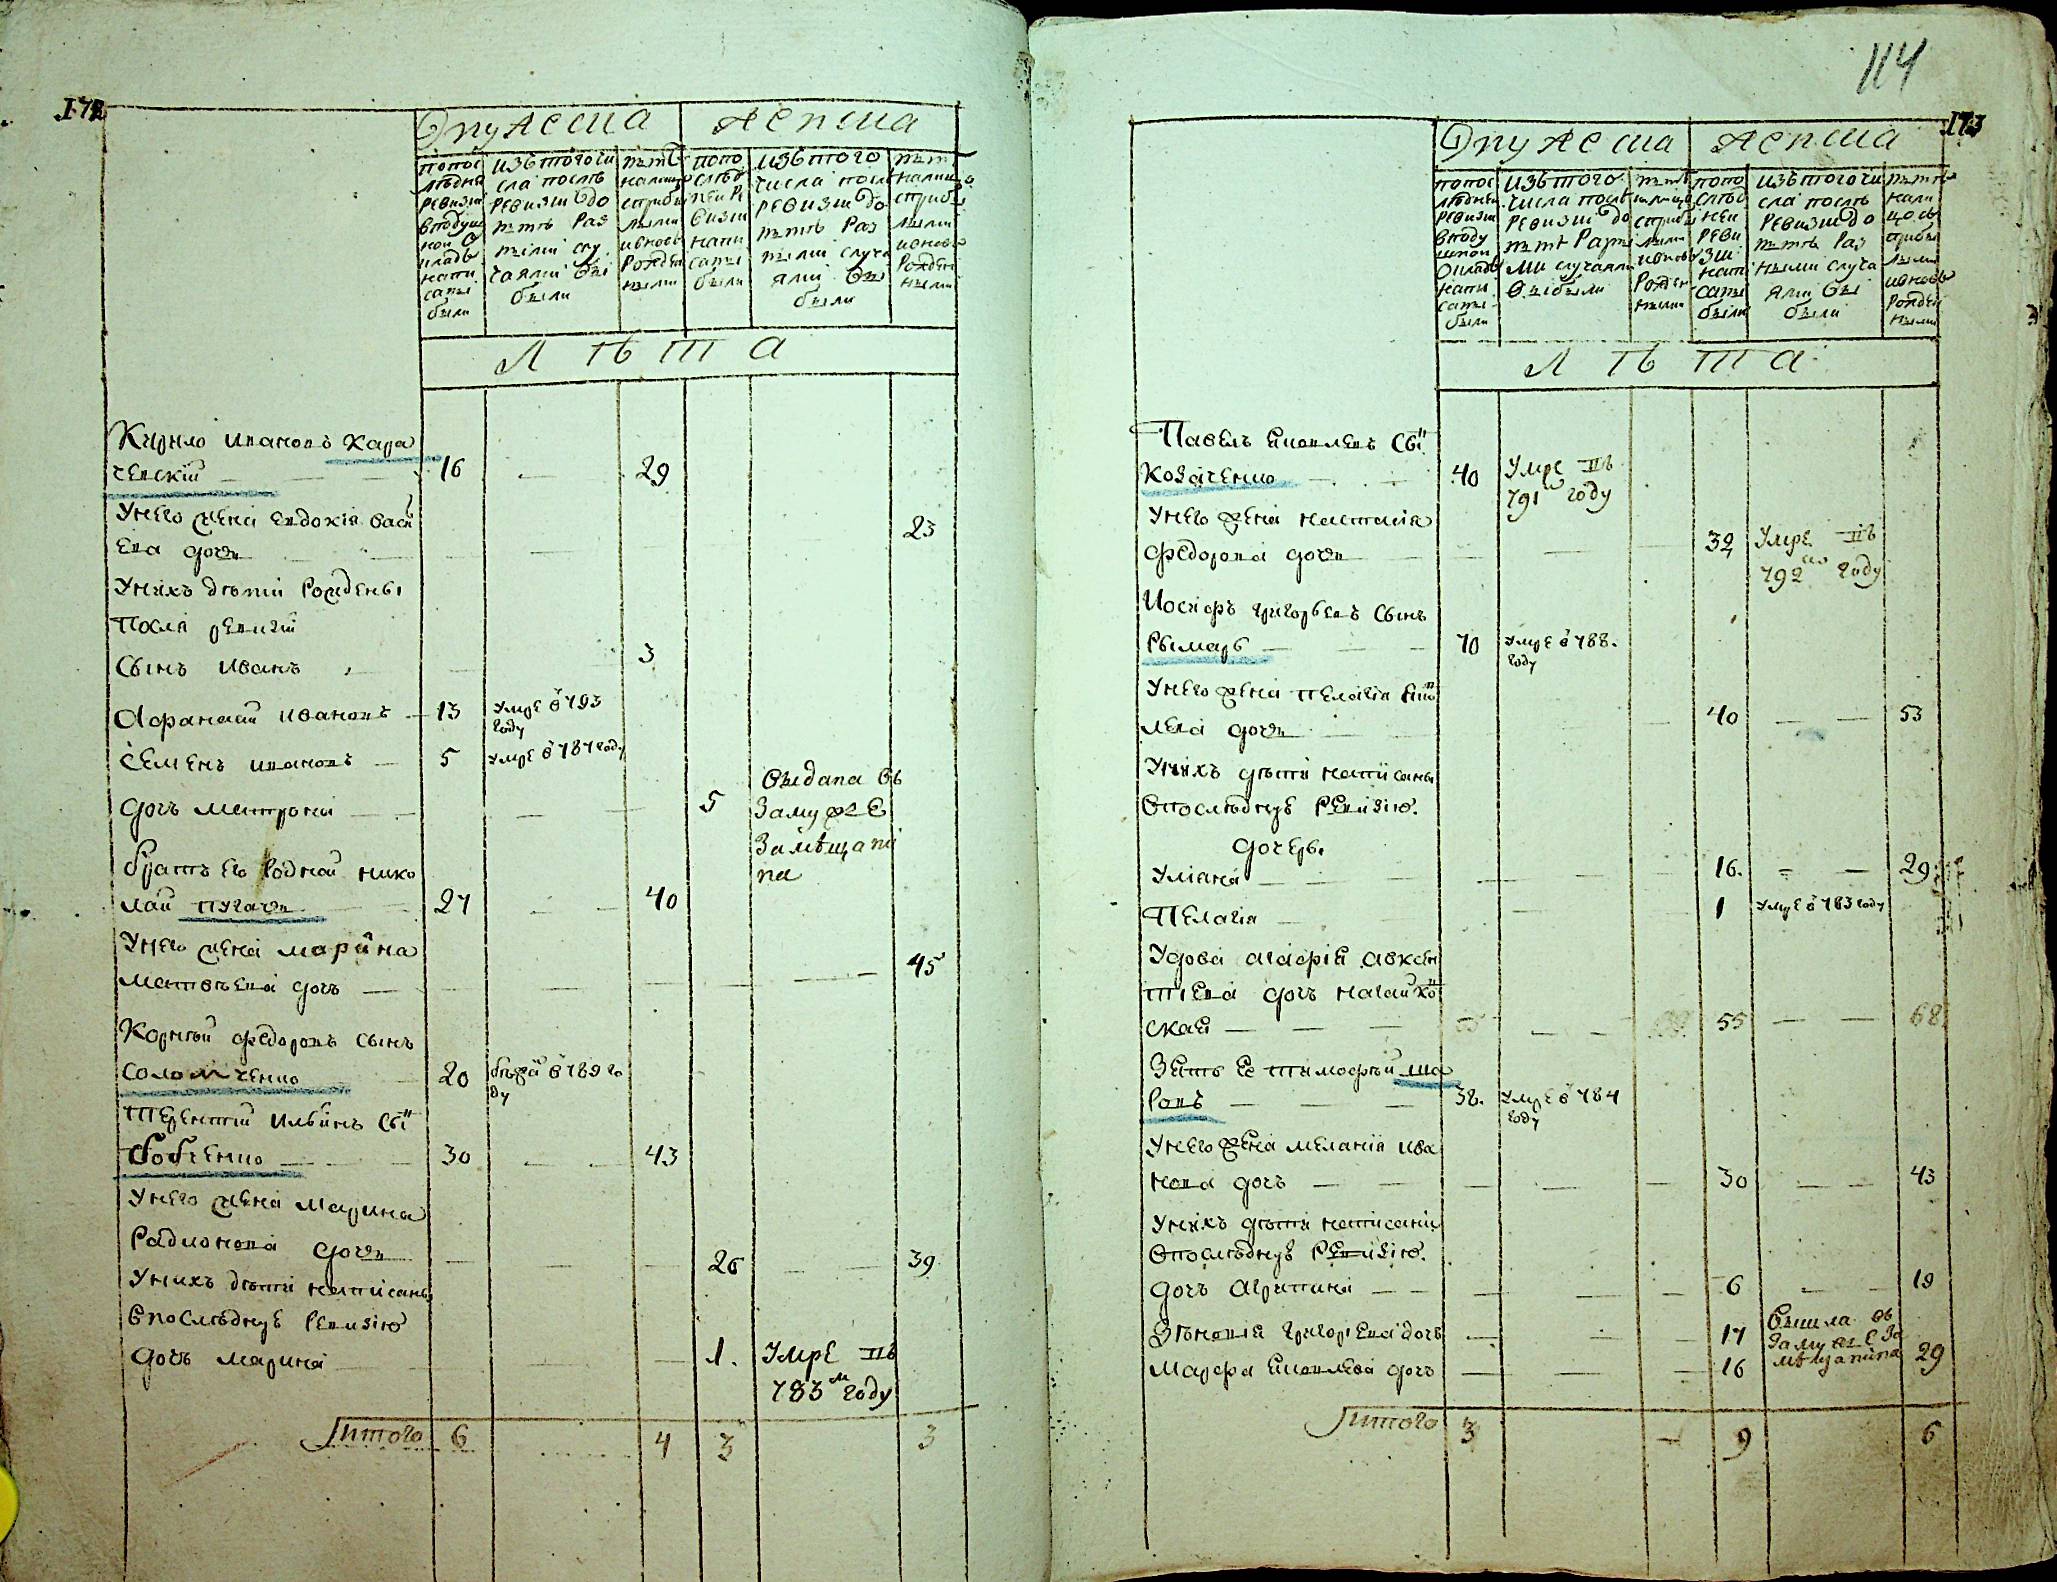 172
Ѻ мужеска
женска
попос
лѣдней
ревизіи
в подуш
ной о
кладъ
напи
саны
были
изъ того чи
сла послѣ
ревизіи до
нынѣ раз
ными слу
чаями вы
были
нынѣ
на лицо
с прибы
лыми
и вновь
рожден
ными
попо
слѣд
ней ре
визіи
напи
саны
были
изъ того
числа послѣ
ревизіи до
нынѣ раз
ными случа
ями вы
были
нынѣ
на лицо
с прибы
лыми
и вновь
рожден
ными
Л ѣ т а
Кирило Ивановъ Кара
чевскій 16 29
У него жена Евдокія Васил
ева дочь 23
У нихъ дѣти рождены
после ревизіи
Сынъ Иванъ 3
Афанасій Ивановъ 13 умре в 793
году
Семенъ Ивановъ 5 умре в 787 году
дочь Матрона 5 выдана въ
замуже
за мѣщани
на
братъ его родной Нико
лай Пугачь 27 40
У него жена Марина
Матвѣева дочь 45
Корнѣй Федоровъ сынъ
20 в 789 го
ду
Терентій Ильинъ сы
30 43
У него жена Марина
Радионова дочь 26 39
У нихъ дѣти написаны
в последнуе ревизію
дочь Марина 1. умре въ
783м году
Итого 6 4 3 3
114
173
Ѻ мужеска
женска
попос
лѣдней
ревизіи
в поду
шной
окладъ
напи
саны
были
изъ того
числа послѣ
ревизіи до
нынѣ разны
ми случаями
выбыли
нынѣ
на лицо
с прибы
лыми
и вновь
рожден
ными
попо
слѣд
ней
реви
зіи
напи
саны
были
изъ того чи
сла послѣ
ревизіи до
нынѣ раз
ными случа
ями вы
были
нынѣ
нали
цо съ
прибы
лыми
и вновь
рожден
ными
Л ѣ т а
Павелъ Яковлевъ сы
Козаченко 40 умре въ
791 году
У него жена Настасія
Федорова дочь 32 умре въ
792 году
Иосифъ Григорьевъ сынъ
Рымарь 70 умре в 788.
году
У него жена Пелагія
лева дочь 40 53
У нихъ дѣти написаны
в последнуе ревизію.
дочеръ.
Уліана 16. 29
Пелагія 1 умре в 783 году
Удова Агафія Авксен
тіева дочь
ская 55 68
Зять ее Тимофѣй Ша
ровъ 38. умре в 784
году
У него жена Меланія Ива
нова дочь 30 43
У нихъ дѣти написани
в последнуе ревизію.
дочь Агрипина 6 19
Зѣновія Григоріева дочь 17 вышла въ
замуже за
мѣщанина
Марфа Яковлева дочь 16 29
Итого 3 9 6